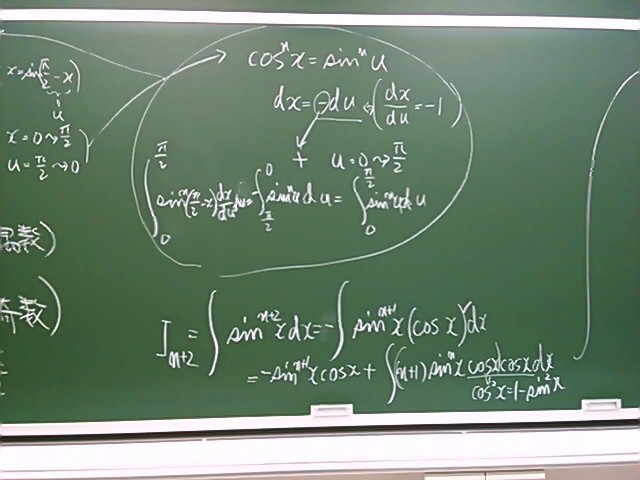 cosⁿx = sinⁿu
x = sin(π/2 - x)
u
dx = -du ⇔ (dx/du = -1)
x = 0 ⇝ π/2
u = π/2 ⇝ 0
+ u = 0 ⇝ π/2
∫₀^{π/2} sinⁿ(π/2 - x) dx/du du = -∫_{π/2}^0 sinⁿu du = ∫₀^{π/2} sinⁿu du
数)
奇数)
I_{n+2} = ∫ sin^{n+2}x dx = -∫ sin^{n+1}x (cos x)' dx
= -sin^{n+1}x cos x + ∫ (n+1) sinⁿx cos x cos x dx
cos²x = 1 - sin²x